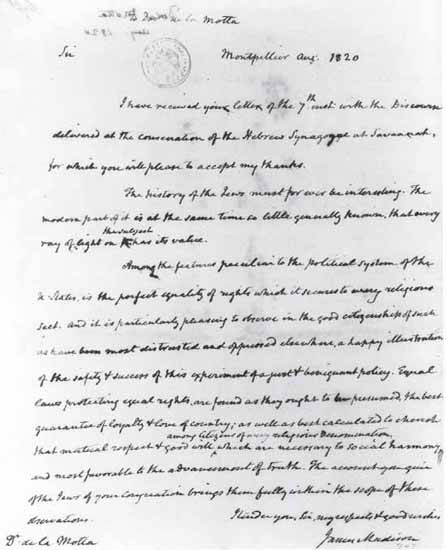 de la Motta
Sir Montpellier Aug. 1820
I have received your letter of the 7th inst. with the Discourse
delivered at the consecration of the Hebrew Synagogue at Savannah,
for which you will please to accept my thanks.
The history of the Jews must for ever be interesting. The
modern part of it is at the same time so little generally known, that every
ray of light on the subject has its value.
Among the features peculiar to the political system of the
U. States, is the perfect equality of rights which it secures to every religious
sect. And it is particularly pleasing to observe in the good citizenship of such
as have been most distrusted and oppressed elsewhere, a happy illustration
of the safety & success of this experiment of a just & benignant policy. Equal
laws protecting equal rights, are found as they ought to be presumed, the best
guarantee of loyalty & love of country; as well as best calculated to cherish
that mutual respect & good will among Citizens of every religious denomination, which are necessary to social harmony
and most favorable to the advancement of truth. The account you give
of the Jews of your Congregation brings them fully within the scope of these
observations.
I tender you, Sir, my respects & good wishes
Dr. de la Motta James Madison